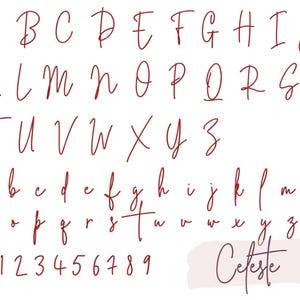 B C D E F G H I
L M N O P Q R S
T U V W X Y Z
b c d e f g h i j k l m
o p q r s t u v w x y z
1 2 3 4 5 6 7 8 9
Celeste